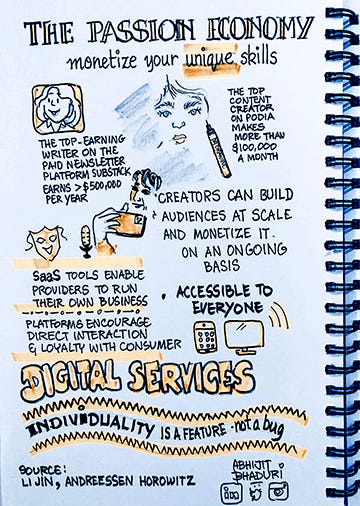 THE PASSION ECONOMY
monetize your unique skills
THE TOP-EARNING
WRITER ON THE
PAID NEWSLETTER
PLATFORM SUBSTACK
EARNS >$500,000
PER YEAR
THE TOP
CONTENT
CREATOR
ON PODIA
MAKES
MORE THAN
$100,000
A MONTH
CREATORS CAN BUILD
AUDIENCES AT SCALE
AND MONETIZE IT.
ON AN ONGOING
BASIS
SaaS TOOLS ENABLE
PROVIDERS TO RUN
THEIR OWN BUSINESS
PLATFORMS ENCOURAGE
DIRECT INTERACTION
& LOYALTY WITH CONSUMER
• ACCESSIBLE TO
EVERYONE
DIGITAL SERVICES
INDIVIDUALITY IS A FEATURE - not a bug
SOURCE:
LI JIN, ANDREESSEN HOROWITZ
ABHIJIT
BHADURI
in